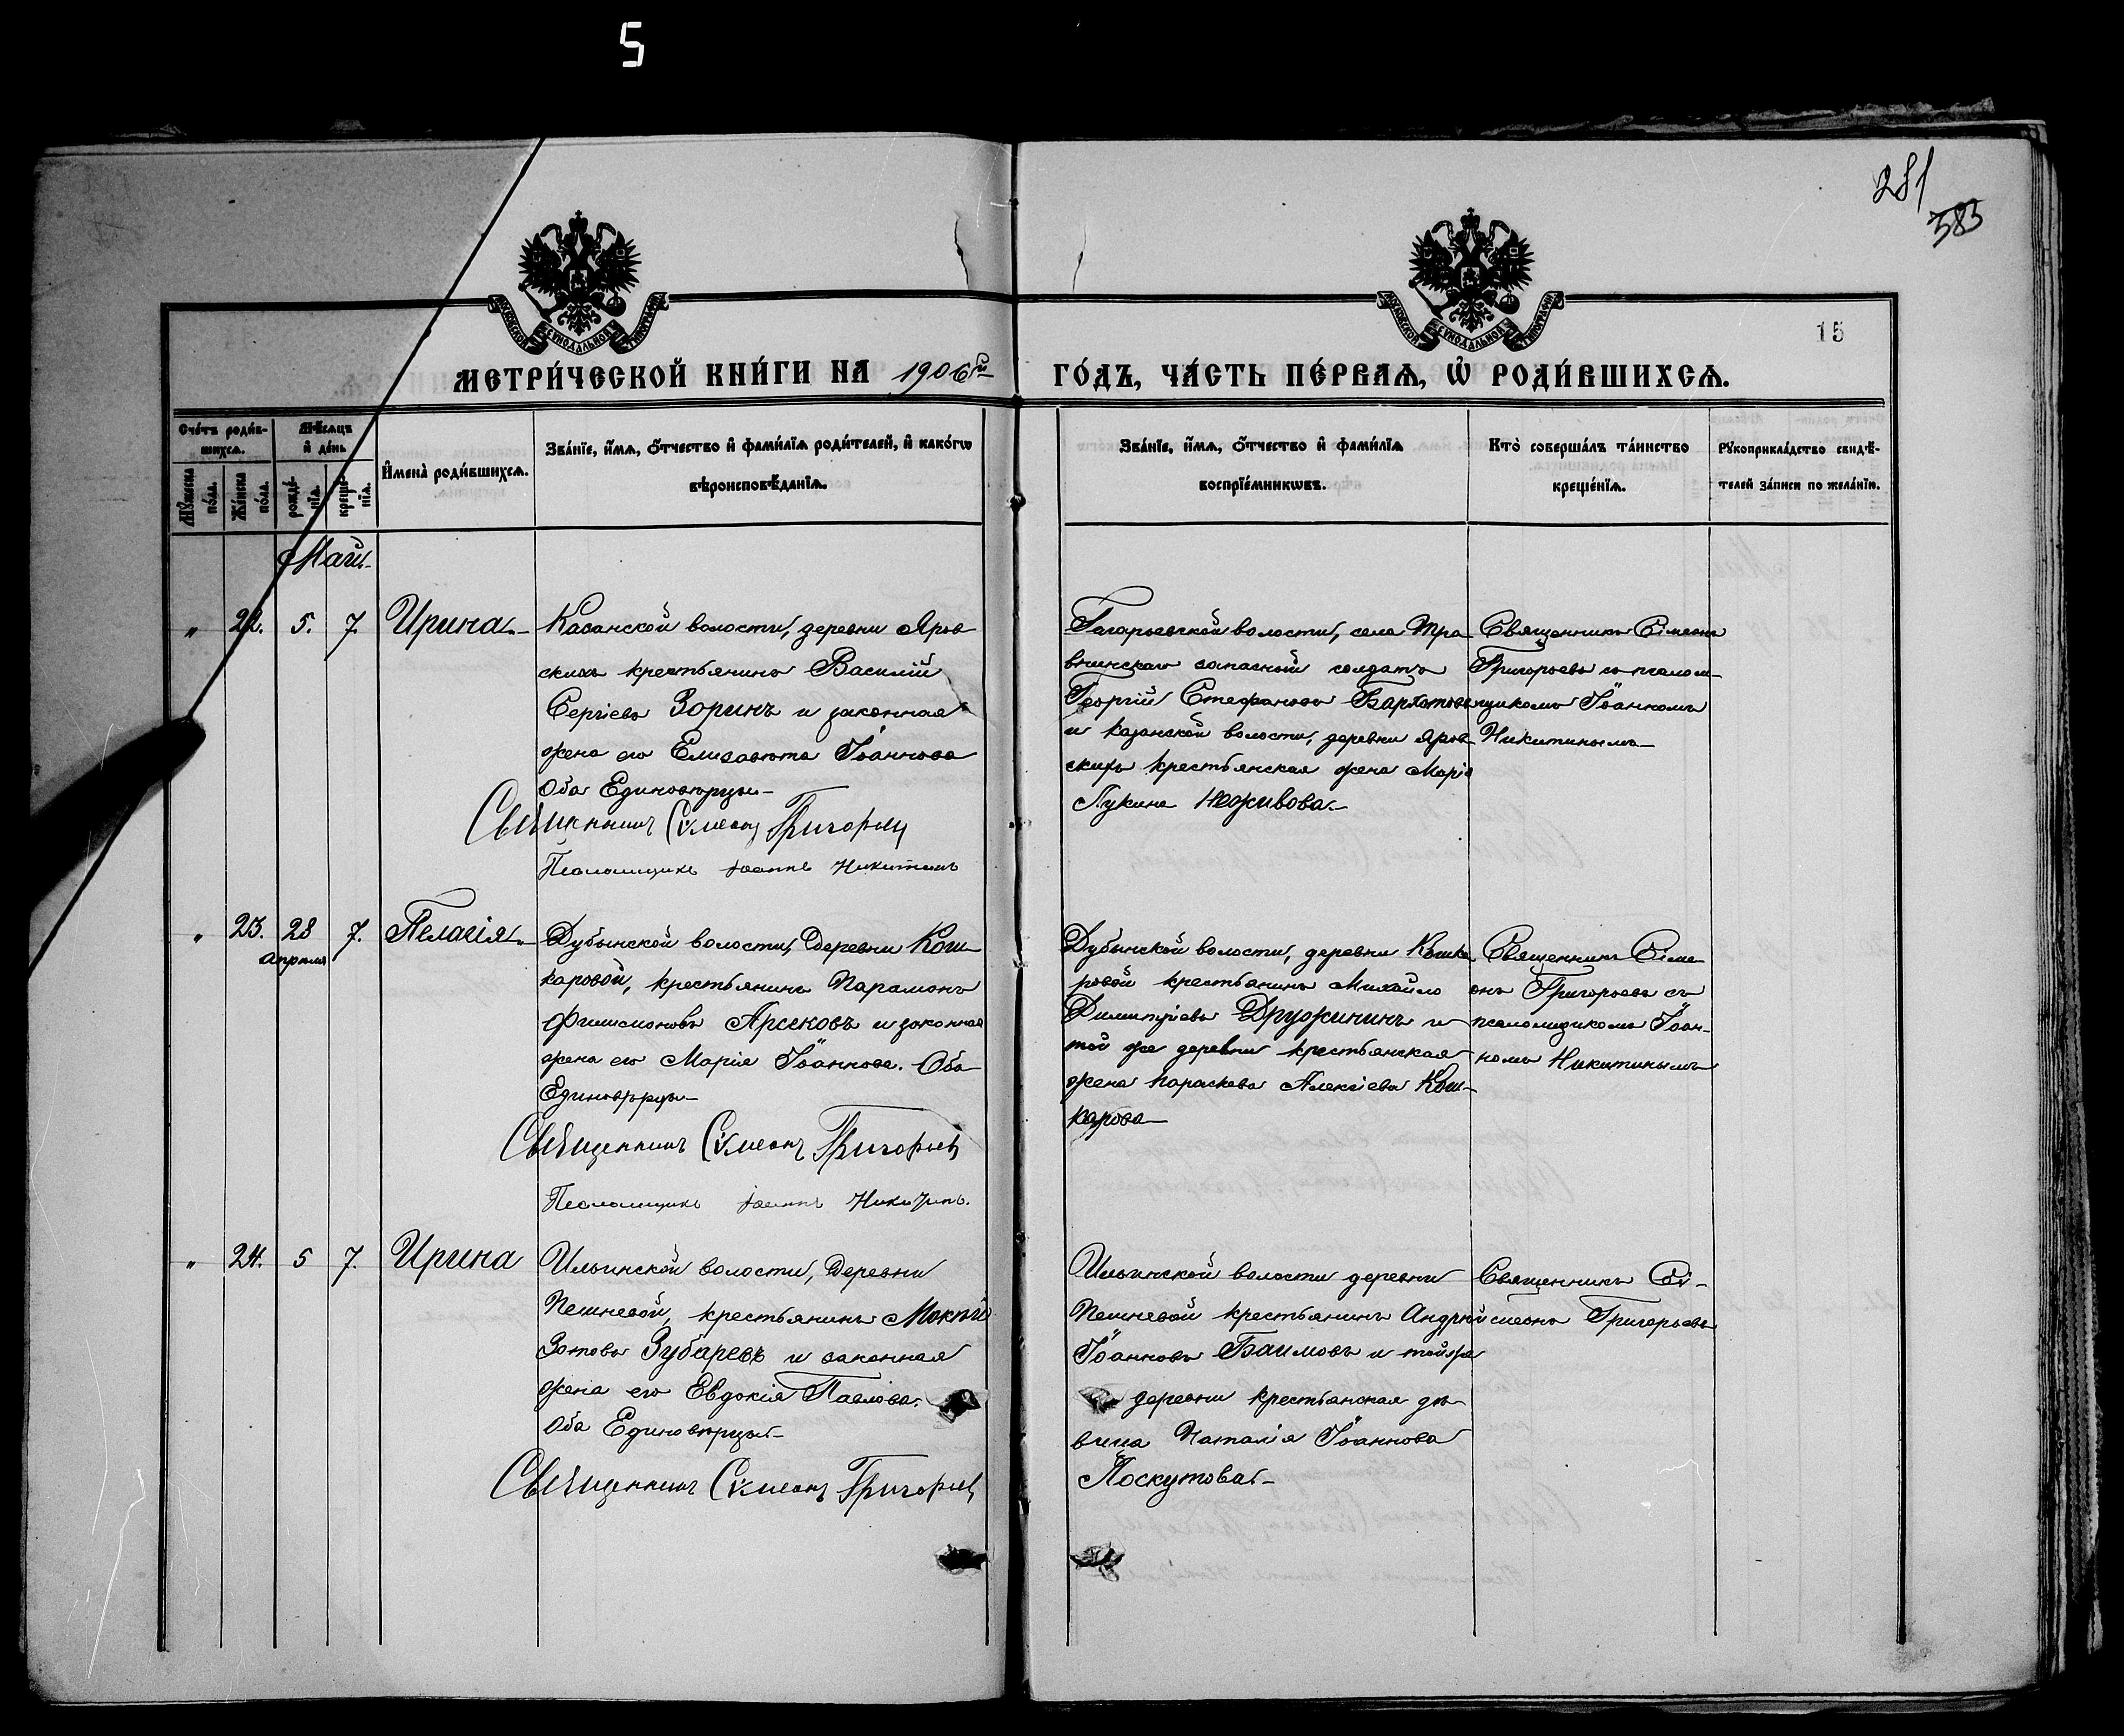 5
281
383
15
МОСКОВСКОЙ СѴНОДАЛЬНОЙ ТИПОГРАФІИ
МОСКОВСКОЙ СѴНОДАЛЬНОЙ ТИПОГРАФІИ
МЕТРИ́ЧЕСКОЙ КНИ́ГИ НА 1906й ГО́ДЪ, ЧА́СТЬ ПЕ́РВАѦ, Ѡ҆ РОДИ́ВШИХСѦ.
Сче́тъ роди́в-
шихсѧ.
Мѣ́сѧцъ
и҆ де́нь
Мꙋ́жеска по́ла.
Же́нска по́ла.
рожде́-нїѧ.
креще́-нїѧ.
И҆мена̀ роди́вшихсѧ.
Зва́нїе, и҆́мѧ, ѻ҆́тчество и҆ фами́лїѧ роди́телей, и҆ како́гѡ
вѣроисповѣ́данїѧ.
Зва́нїе, и҆́мѧ, ѻ҆́тчество и҆ фами́лїѧ
воспрїе́мникѡвъ.
Кто̀ соверша́лъ та́инство
креще́нїѧ.
Рꙋкоприкла́дство свидѣ́-
телей за́писи по жела́нїю.
Май
" 22. 5. 7. Ирина
Казанской волости, деревни Яров
скихъ крестьянинъ Василій
Сергіевъ Зоринъ и законная
жена его Елисавета Іоаннова
Оба Единовѣрцы
Священникъ Сѵмеонъ Григорьевъ
Псаломщикъ Іоаннъ Никитинъ
Гагарьевской волости, села Тра
внинскаго запасный солдатъ
Георгій Стефановъ Бархатовъ
и Казанской волости, деревни Яров
скихъ крестьянская жена Марія
Лукина Неживова
Священникъ Сѵмеонъ
Григорьевъ съ псалом-
щикомъ Іоанномъ
Никитинымъ
" 23. 28 апрѣля 7. Пелагія
Дубынской волости, Деревни Кош-
каровой, крестьянинъ Парамонъ
Филимоновъ Арсеновъ и законная
жена его Марія Іоаннова. Оба
Единовѣрцы
Священникъ Сѵмеонъ Григорьевъ
Псаломщикъ Іоаннъ Никитинъ.
Дубынской волости, деревни Кошка
ровой крестьянинъ Михаилъ
Димитріевъ Дружининъ и
той же деревни крестьянская
жена Параскева Алексіева Кош-
карова
Священникъ Сѵме
онъ Григорьевъ съ
псаломщикомъ Іоан-
номъ Никитинымъ
" 24. 5 7. Ирина
Ильинской волости, Деревни
Пешневой, крестьянинъ Мокій
Зотовъ Зубаревъ и законная
жена его Евдокія Павлова.
Оба Единовѣрцы
Священникъ Сѵмеонъ Григорьевъ
Ильинской волости деревни
Пешневой крестьянинъ Андрей
Іоанновъ Баимовъ и той же
деревни крестьянская дѣ
вица Наталія Іоаннова
Лоскутова
Священникъ Сѵ-
меонъ Григорьевъ